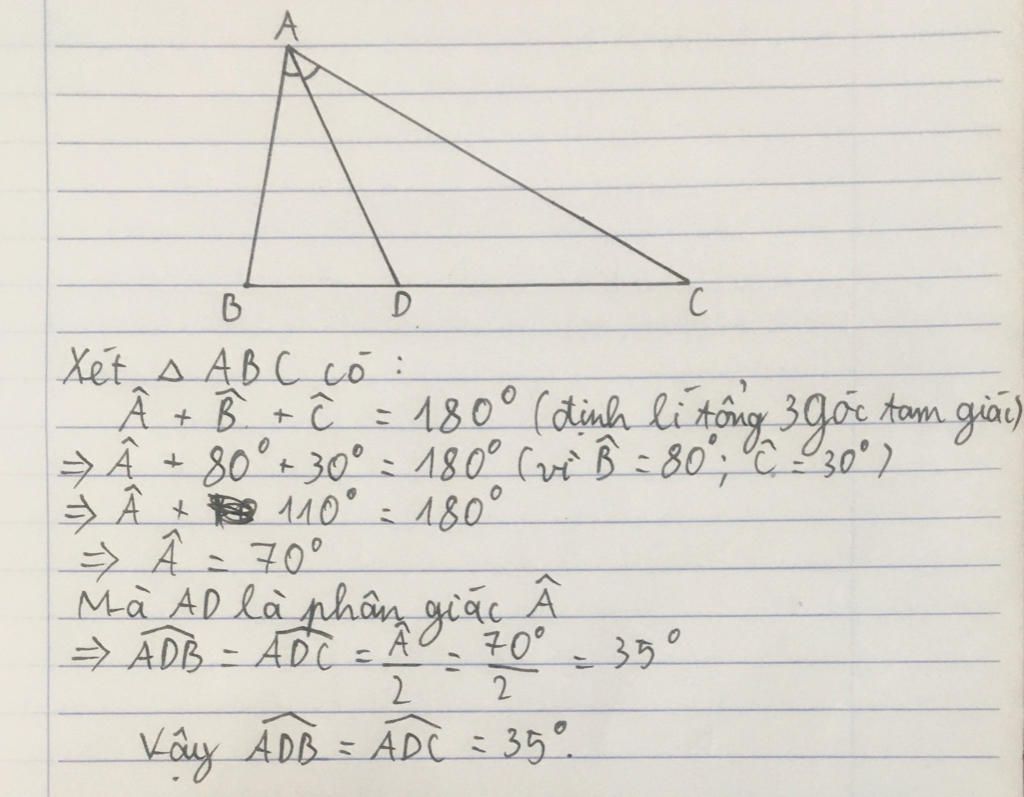 A
B D C
Xét △ ABC có:
Â + B̂ + Ĉ = 180° (định lí tổng 3 góc tam giác)
⇒ Â + 80° + 30° = 180° (vì B̂ = 80°; Ĉ = 30°)
⇒ Â + 110° = 180°
⇒ Â = 70°
Mà AD là phân giác Â
⇒ \widehat{ADB} = \widehat{ADC} = Â/2 = 70°/2 = 35°
Vậy \widehat{ADB} = \widehat{ADC} = 35°.